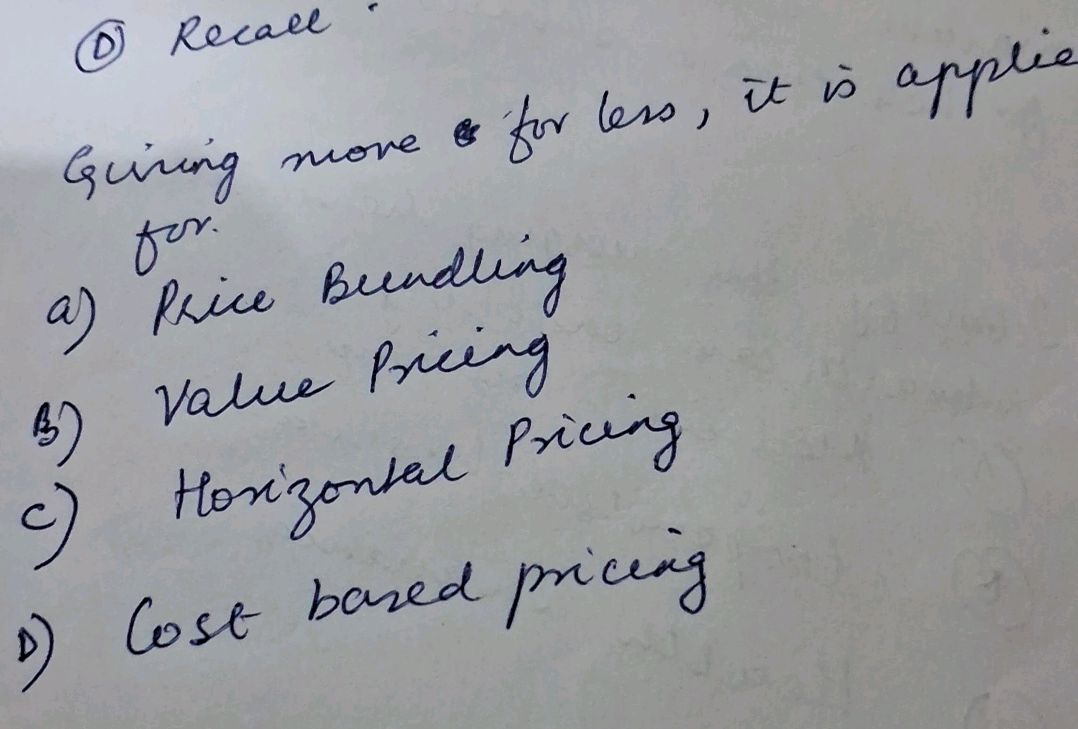 Ⓓ Recall.
Giving more for less, it is applie
for.
a) Price Bundling
B) Value Pricing
c) Horizontal Pricing
D) Cost based pricing